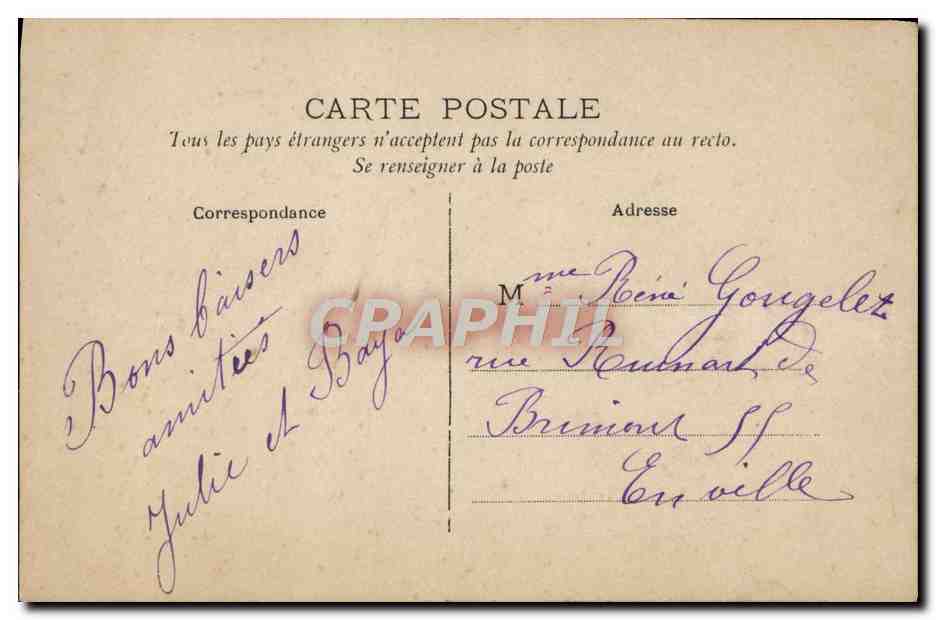 CARTE POSTALE
Tous les pays étrangers n'acceptent pas la correspondance au recto.
Se renseigner à la poste
Correspondance
Bons baisers
amitiées
Julie et Baya
Adresse
Mme René Gougelet
rue Ruinart de
Brimont 55
En ville
CPAPHIL